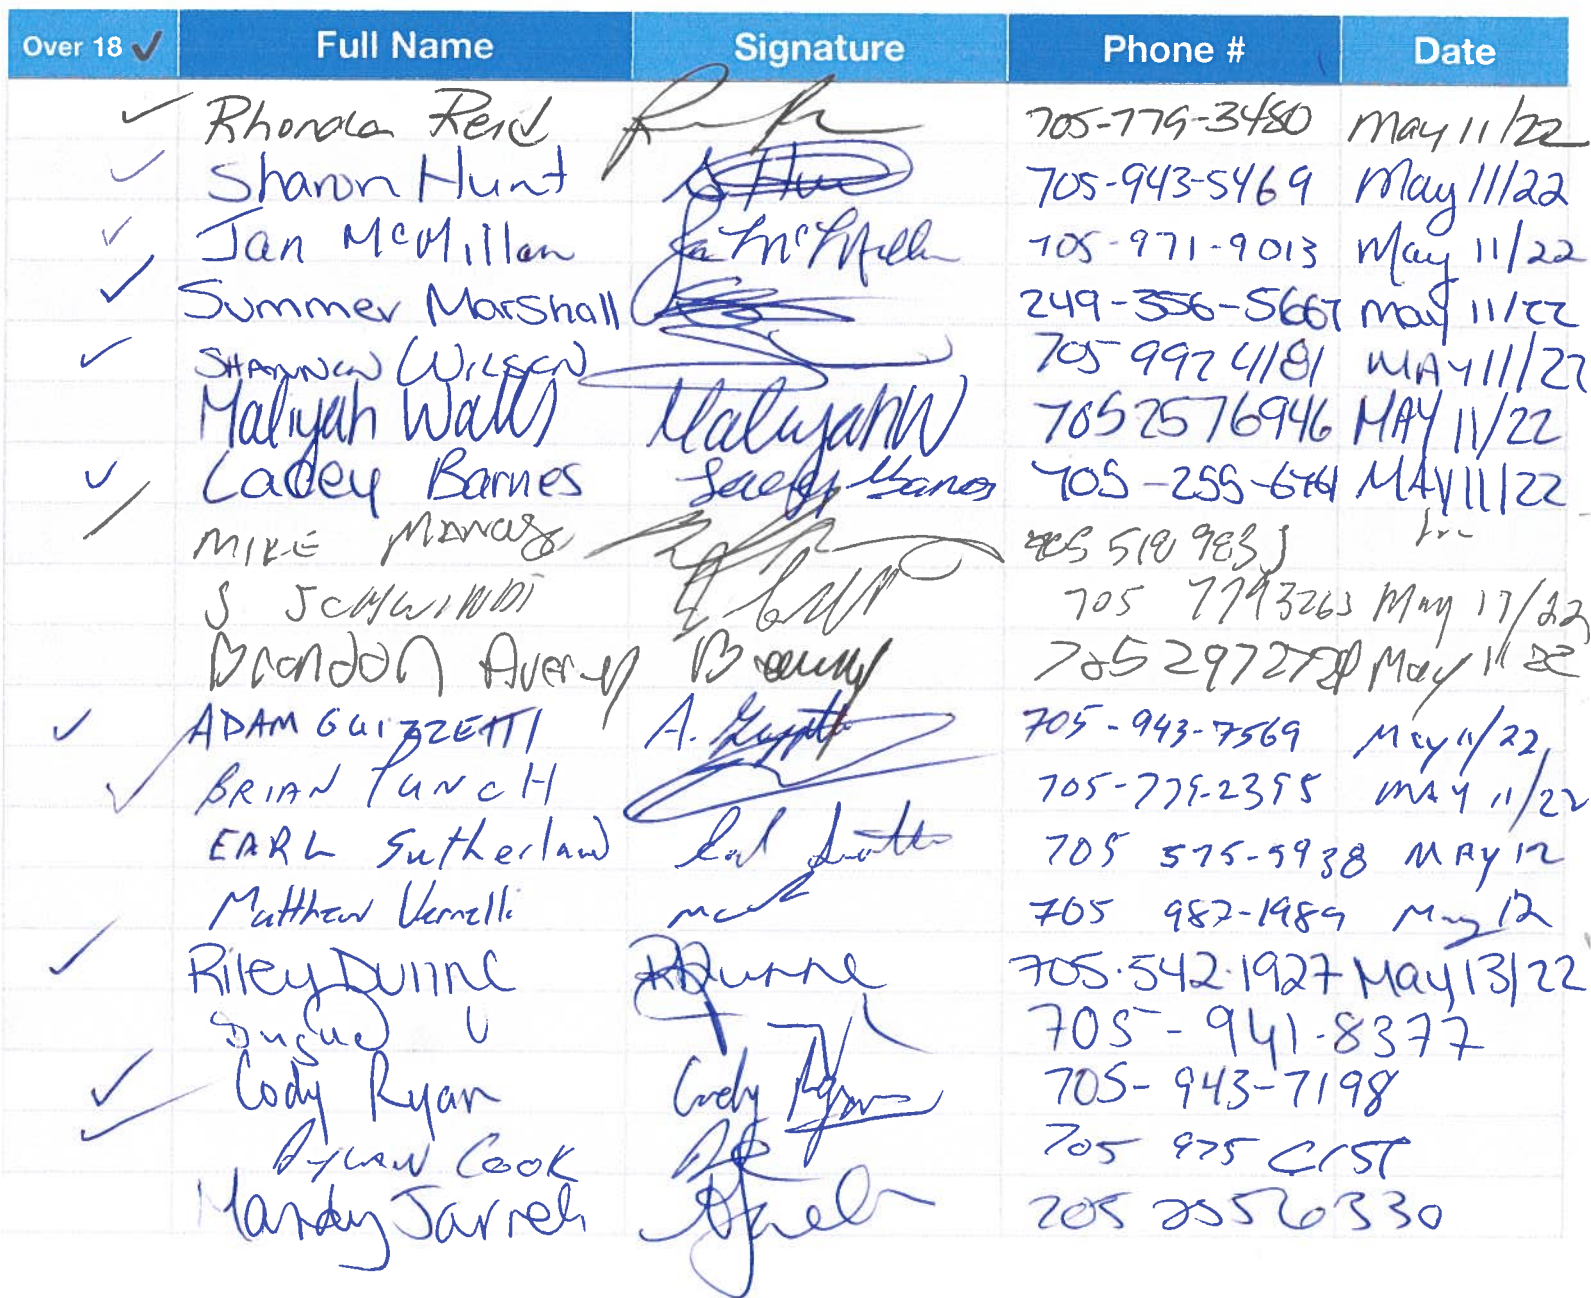 Over 18 ✓ Full Name Signature Phone # Date
✓ Rhonda Reid 705-779-3480 May 11/22
✓ Sharon Hunt S Hun 705-943-5469 May 11/22
✓ Jan McMillan Jan McMillan 705-971-9013 May 11/22
✓ Summer Marshall 249-356-5667 May 11/22
✓ SHANNON WILSON 705 992 4181 MAY 11/22
Maliyah Walls Maliyah W 705 257 6946 MAY 11/22
✓ Lacey Barnes Lacey Barnes 705-255-6761 MAY 11/22
MIKE
S SCHWINDT 705 779 3263 May 17/22
Brandon Avery 705 297 May 11 22
✓ ADAM GUIZZETTI A. Guizzetti 705-943-7569 May 11/22
✓ BRIAN PUNCH 705-779-2395 MAY 11/22
EARL Sutherland 705 575-9938 MAY 12
Matthew 705 987-1989 May 12
✓ Riley Dunne R Dunne 705-542-1927 May 13/22
705-941-8377
✓ Cody Ryan Cody Ryan 705-943-7198
✓ DYLAN COOK 705 975
Mandy Jarrell 705 255 6330